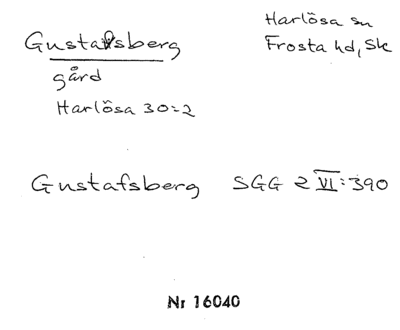 Gustafsberg
Harlösa sn
Frosta hd, Sk
gård
Harlösa 30:2
Gustafsberg SGG 2 VI:390
Nr 16040